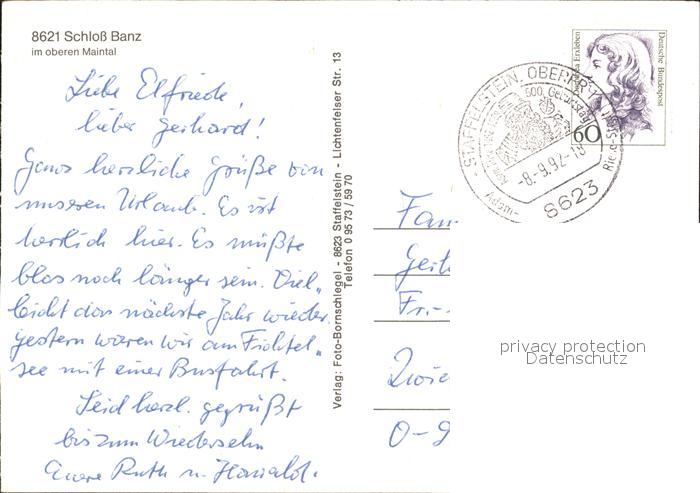 8621 Schloß Banz
im oberen Maintal
Liebe Elfriede,
lieber Gerhard!
Ganz herzliche Grüße von
unserem Urlaub. Es ist
herrlich hier. Es müßte
blos noch länger sein. Viel„
leicht das nächste Jahr wieder.
gestern waren wir am Fichtel„
see mit einer Busfahrt.
Seid herzl. gegrüßt
bis zum Wiedersehn
Eure Ruth u.
Verlag: Foto-Bornschlegel - 8623 Staffelstein - Lichtenfelser Str. 13
Telefon 0 95 73 / 59 70
STAFFELSTEIN, OBERFR
500. Geburtstag
-8.-9.92-18
Adam-
Riese-St
8623
Dorothea Erxleben
Deutsche Bundespost
60
Fam
Gerh
Fri
Zwic
O-9
privacy protection
Datenschutz